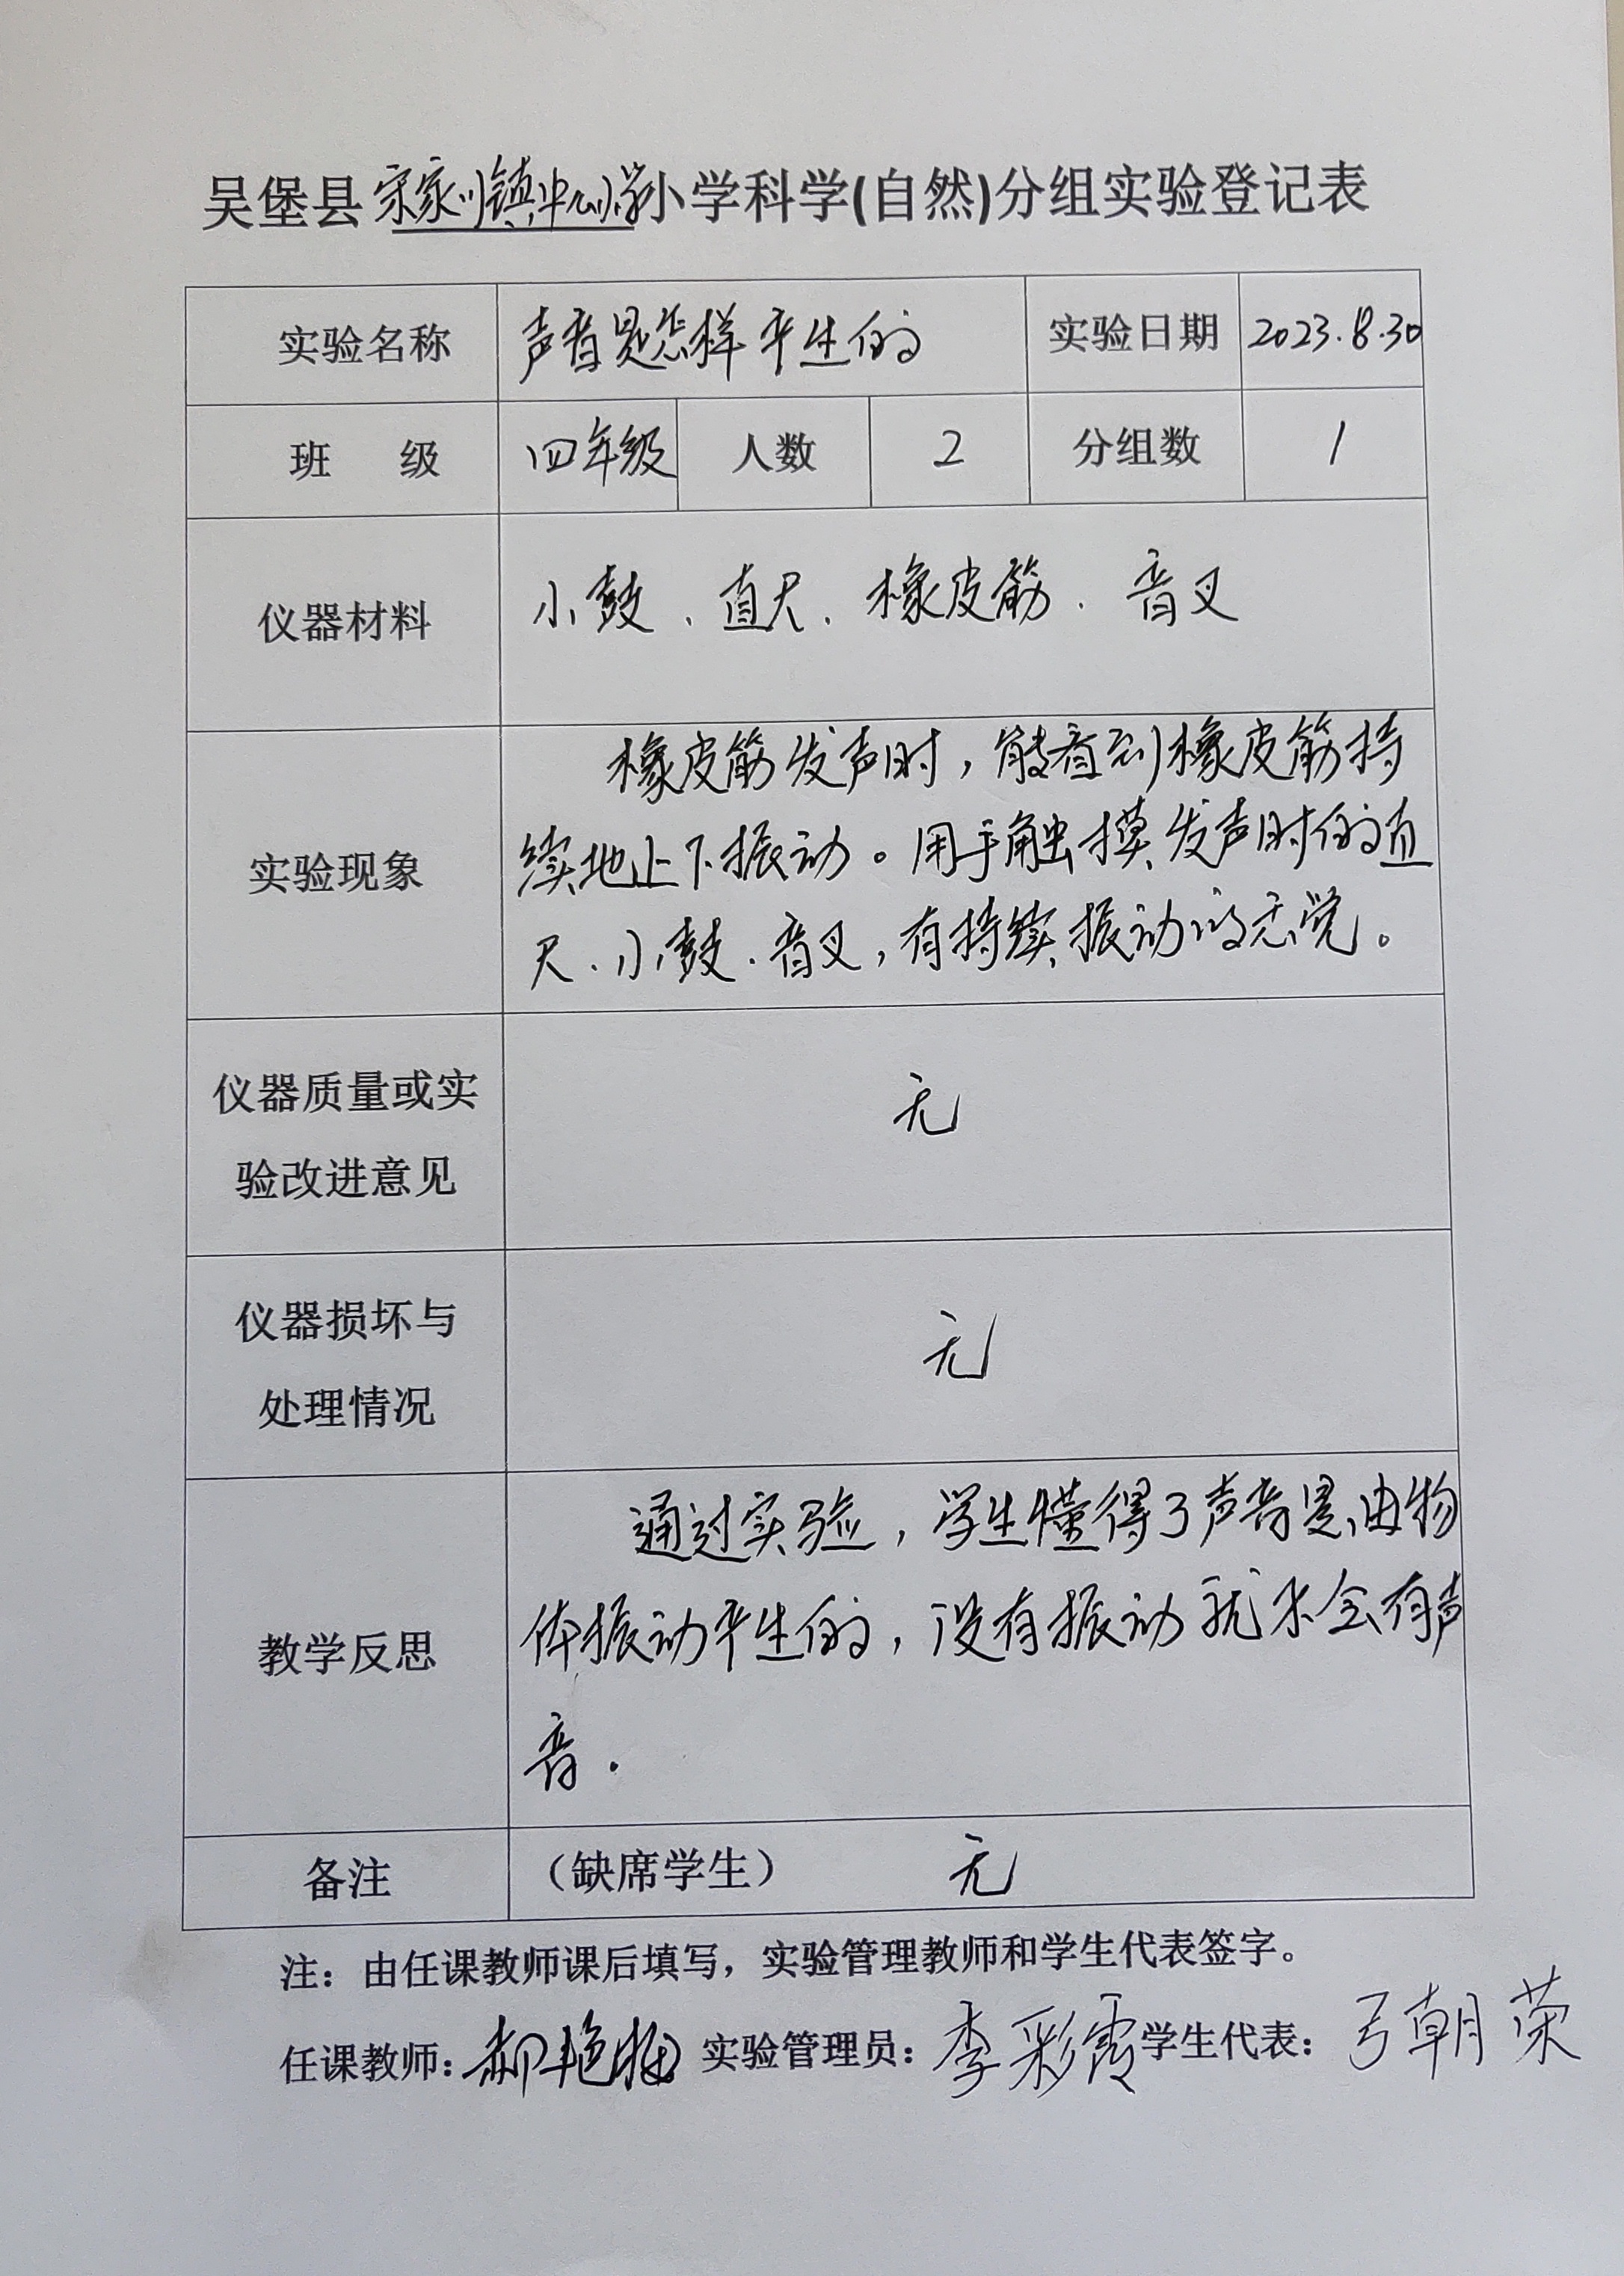 吴堡县宋家川镇中心小学小学科学(自然)分组实验登记表
实验名称 声音是怎样产生的 实验日期 2023.8.30
班 级 四年级 人数 2 分组数 1
仪器材料 小鼓、直尺、橡皮筋、音叉
橡皮筋发声时，能看到橡皮筋持
实验现象 续地上下振动。用手触摸发声时的直
尺、小鼓、音叉，有持续振动的感觉。
仪器质量或实
验改进意见 无
仪器损坏与
处理情况 无
通过实验，学生懂得了声音是由物
教学反思 体振动产生的，没有振动就不会有声
音.
备注 （缺席学生） 无
注：由任课教师课后填写，实验管理教师和学生代表签字。
任课教师：郝艳 实验管理员：李彩霞 学生代表：弓朝荣